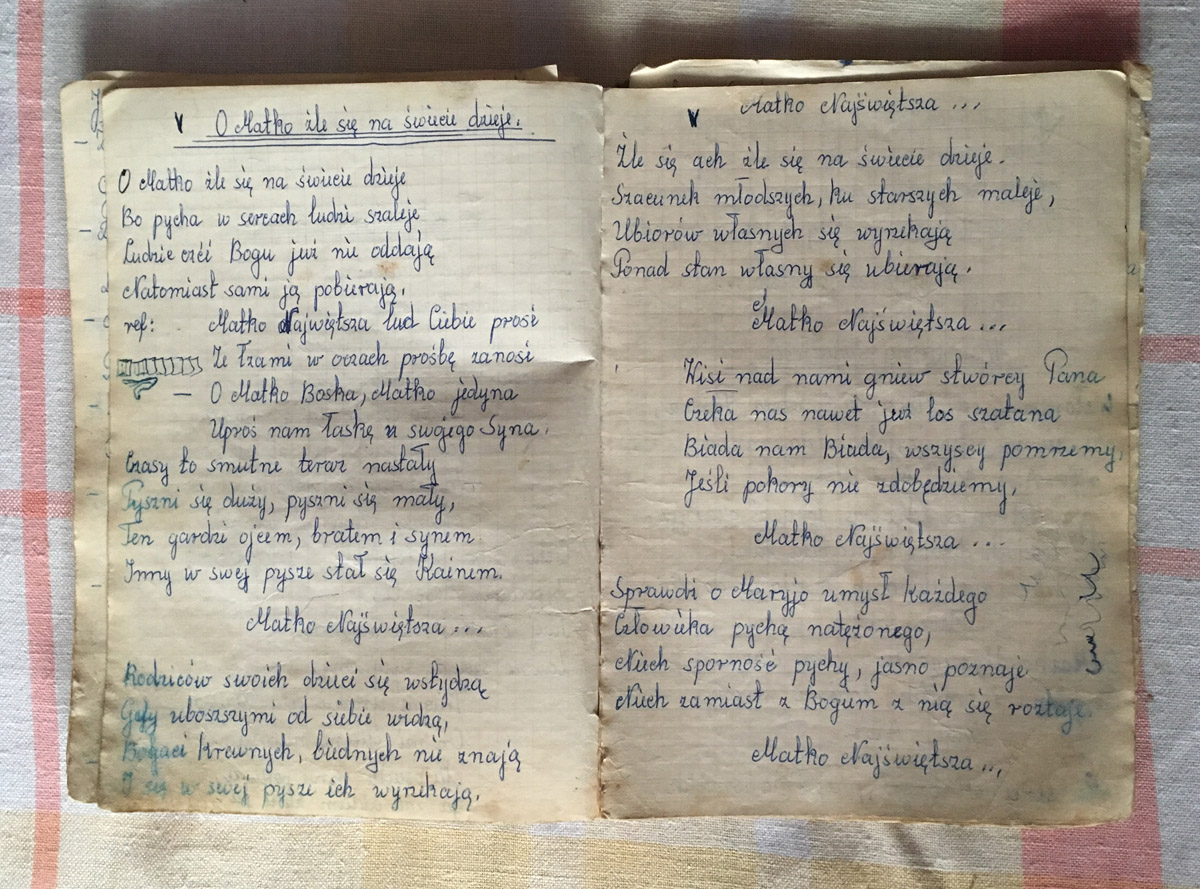 O Matko źle się na świecie dzieje.
O Matko źle się na świecie dzieje
Bo pycha w sercach ludzi szaleje
Ludzie cześć Bogu już nie oddają
Natomiast sami ją pobierają.
ref: Matko Najwiętsza lud Ciebie prosi
Ze łzami w oczach prośbę zanosi
— O Matko Boska, Matko jedyna
Uproś nam łaskę u swojego Syna.
Czasy to smutne teraz nastały
Pyszni się duży, pyszni się mały,
Ten gardzi ojcem, bratem i synem
Inny w swej pysze stał się Kainem.
Matko Najświętsza ...
Rodziców swoich dzieci się wstydzą
Gdy uboższymi od siebie widzą,
Bogaci krewnych, biednych nie znają
I się w swej pysze ich wyrzekają,
Matko Najświętsza ...
Źle się ach źle się na świecie dzieje.
Szacunek młodszych, ku starszych maleje,
Ubiorów własnych się wyrzekają
Ponad stan własny się ubierają.
Matko Najświętsza ...
Wisi nad nami gniew stwórcy Pana
Czeka nas nawet już los szatana
Biada nam Biada, wszyscy pomrzemy,
Jeśli pokory nie zdobędziemy,
Matko Najświętsza ...
Sprawdi o Maryjo umysł każdego
Człowieka pychą natężonego,
Niech sporność pychy, jasno poznaje
Niech zamiast z Bogum z nią się roztaje.
Matko Najświętsza ...